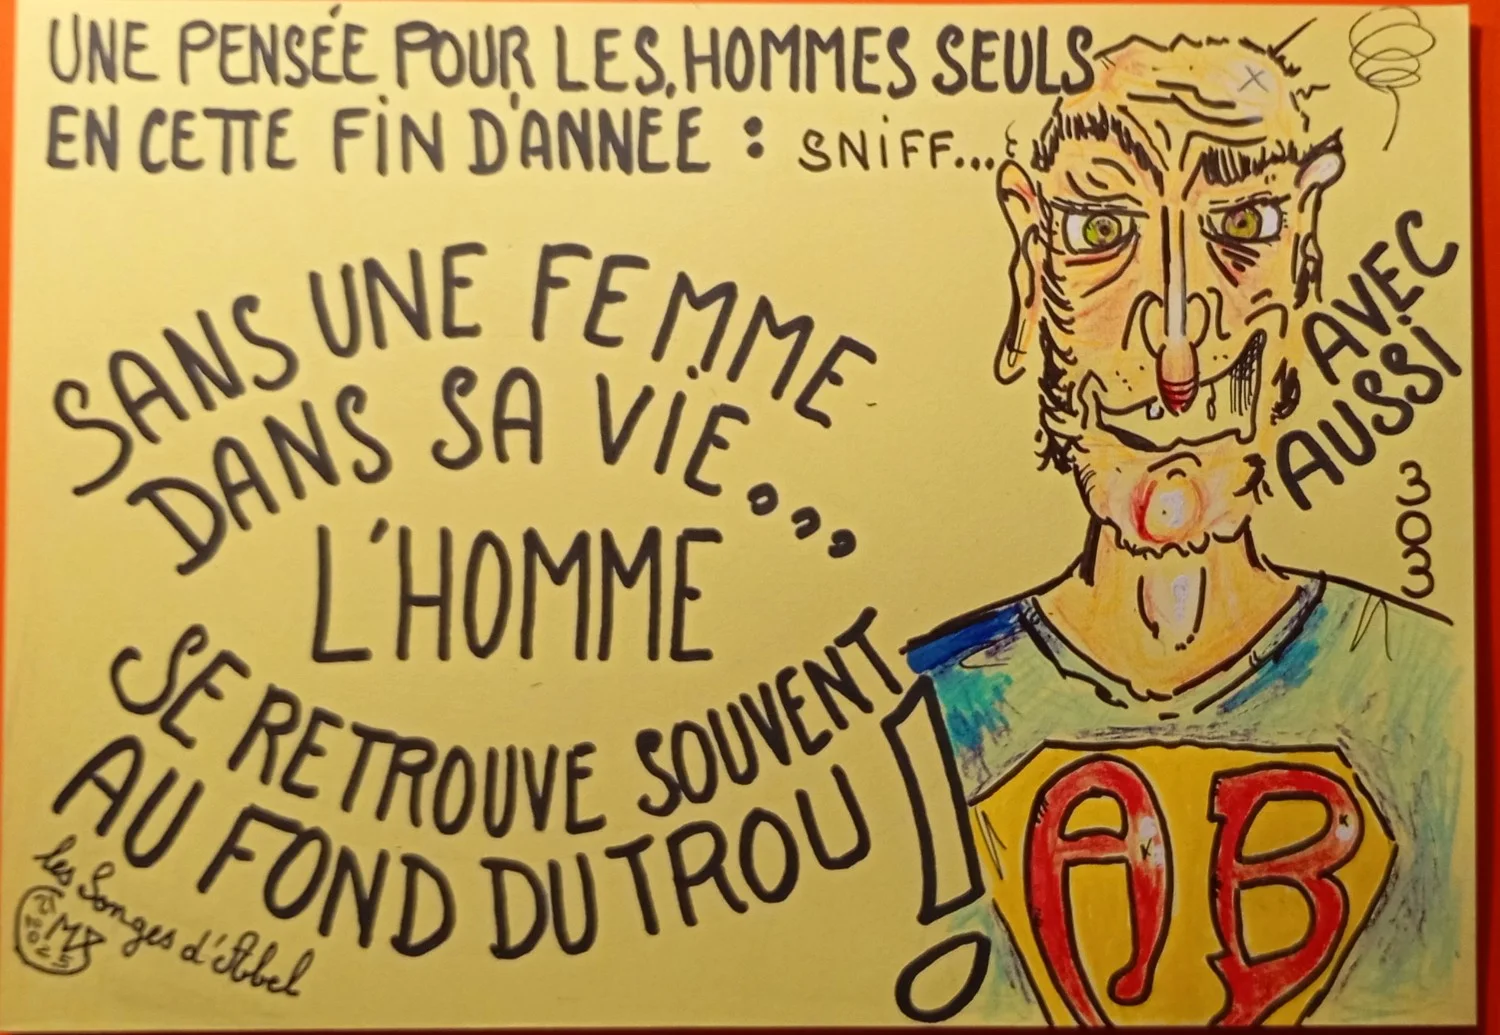 UNE PENSÉE POUR LES HOMMES SEULS
EN CETTE FIN D'ANNÉE : SNIFF...
SANS UNE FEMME
DANS SA VIE...
L'HOMME
SE RETROUVE SOUVENT
AU FOND DU TROU !
AVEC
AUSSI
303
AB
les Songes d'Abel